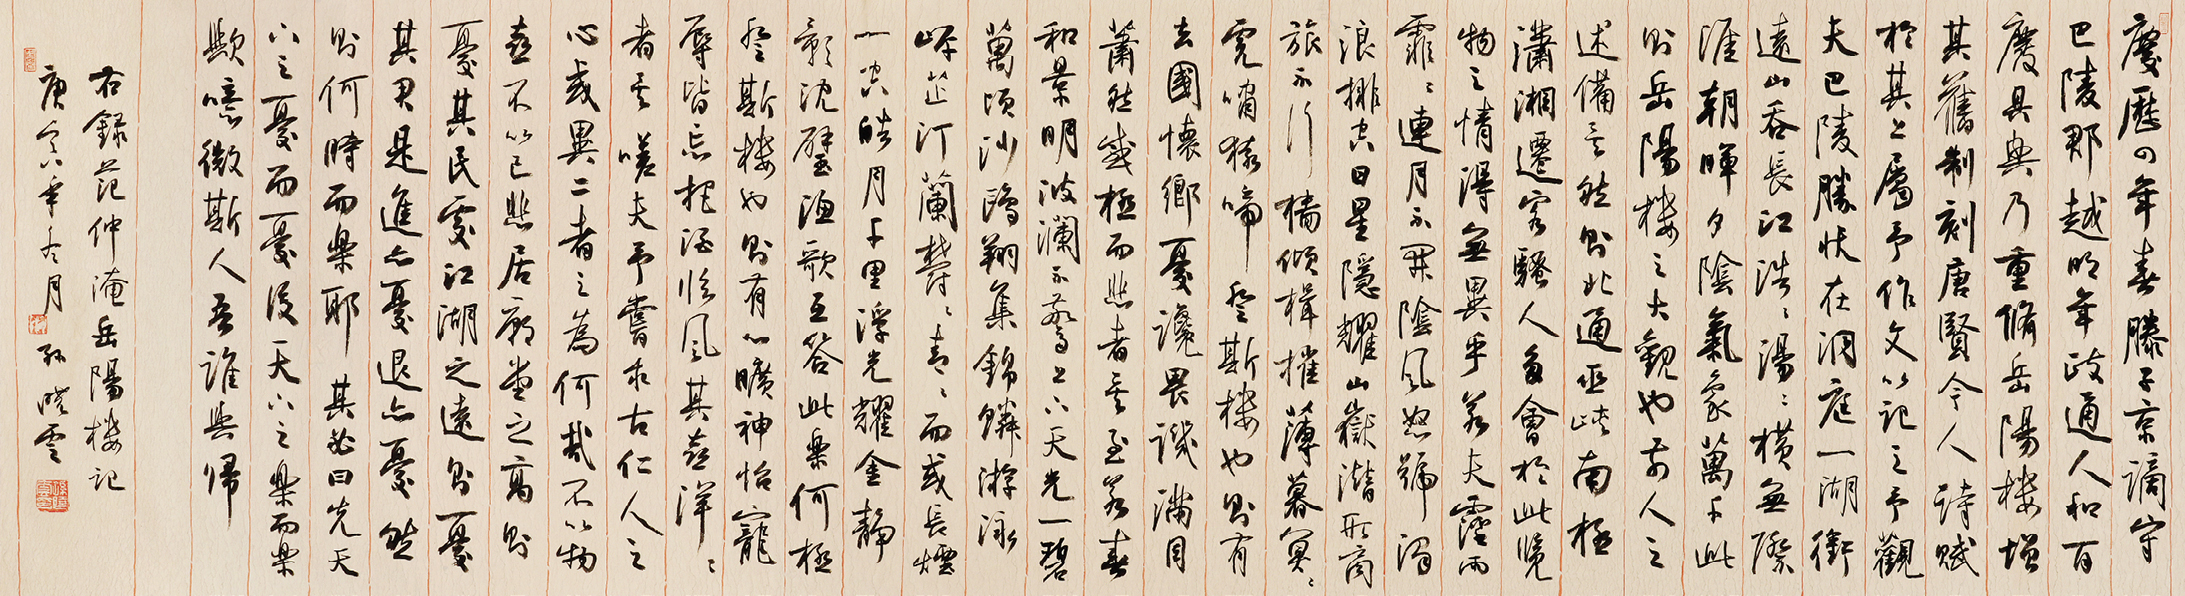 慶曆四年春滕子京謫守
巴陵郡越明年政通人和百
廢具興乃重脩岳陽樓增
其舊制刻唐賢今人詩賦
於其上屬予作文以記之予觀
夫巴陵勝狀在洞庭一湖銜
遠山吞長江浩〻湯〻橫無際
涯朝暉夕陰氣象萬千此
則岳陽樓之大觀也前人之
述備矣然則北通巫峽南極
瀟湘遷客騷人多會於此覽
物之情得無異乎若夫霪雨
霏〻連月不開陰風怒號濁
浪排空日星隱耀山嶽潛形商
旅不行檣傾楫摧薄暮冥〻
虎嘯猿啼登斯樓也則有
去國懷鄉憂讒畏譏滿目
蕭然感極而悲者矣至若春
和景明波瀾不驚上下天光一碧
萬頃沙鷗翔集錦鱗游泳
岸芷汀蘭鬱〻青〻而或長煙
一空皓月千里浮光耀金靜
影沈璧漁歌互答此樂何極
登斯樓也則有心曠神怡寵
辱皆忘把酒臨風其喜洋〻
者矣嗟夫予嘗求古仁人之
心或異二者之為何哉不以物
喜不以己悲居廟堂之高則
憂其民處江湖之遠則憂
其君是進亦憂退亦憂然
則何時而樂耶其必曰先天
下之憂而憂後天下之樂而樂
歟噫微斯人吾誰與歸
右錄范仲淹岳陽樓記
庚寅年冬月孫曉雲